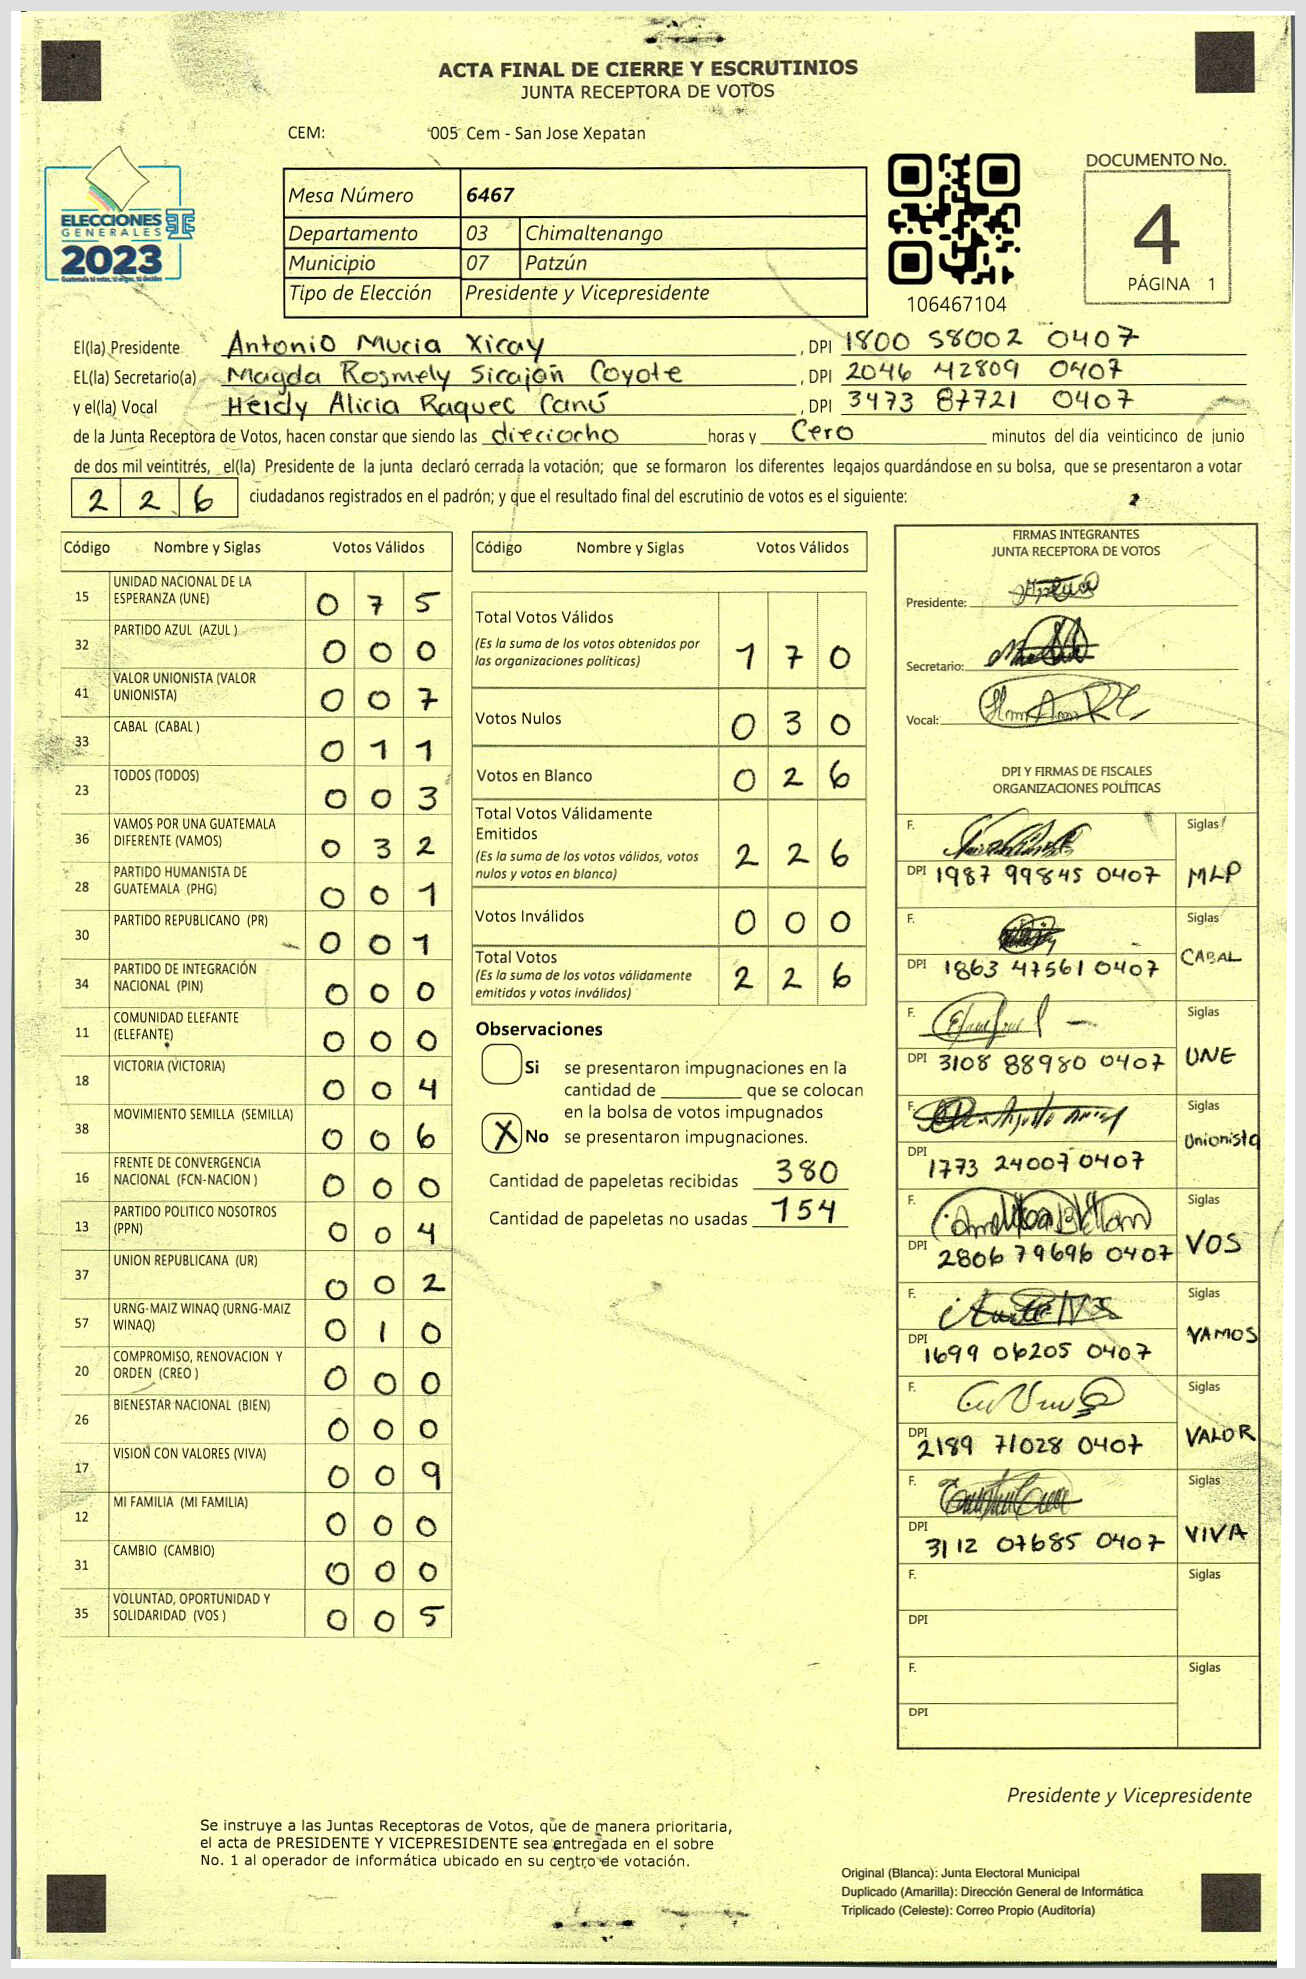 ACTA FINAL DE CIERRE Y ESCRUTINIOS
JUNTA RECEPTORA DE VOTOS
CEM: 005 Cem - San Jose Xepatan
ELECCIONES
GENERALES
2023
Mesa Número 6467
Departamento 03 Chimaltenango
Municipio 07 Patzún
Tipo de Elección Presidente y Vicepresidente
106467104
DOCUMENTO No.
4
PÁGINA 1
El(la) Presidente Antonio Mucia Xicay , DPI 1800 58002 0407
EL(la) Secretario(a) Magda Rosmely Sicajan Coyote , DPI 2046 42809 0407
y el(la) Vocal Heidy Alicia Raquec Canú , DPI 3473 87721 0407
de la Junta Receptora de Votos, hacen constar que siendo las dieciocho horas y Cero minutos del día veinticinco de junio
de dos mil veintitrés, el(la) Presidente de la junta declaró cerrada la votación; que se formaron los diferentes legajos quardándose en su bolsa, que se presentaron a votar
2 2 6 ciudadanos registrados en el padrón; y que el resultado final del escrutinio de votos es el siguiente:
Código Nombre y Siglas Votos Válidos
15 UNIDAD NACIONAL DE LA ESPERANZA (UNE) 0 7 5
32 PARTIDO AZUL (AZUL ) 0 0 0
41 VALOR UNIONISTA (VALOR UNIONISTA) 0 0 7
33 CABAL (CABAL ) 0 1 1
23 TODOS (TODOS) 0 0 3
36 VAMOS POR UNA GUATEMALA DIFERENTE (VAMOS) 0 3 2
28 PARTIDO HUMANISTA DE GUATEMALA (PHG) 0 0 1
30 PARTIDO REPUBLICANO (PR) 0 0 1
34 PARTIDO DE INTEGRACIÓN NACIONAL (PIN) 0 0 0
11 COMUNIDAD ELEFANTE (ELEFANTE) 0 0 0
18 VICTORIA (VICTORIA) 0 0 4
38 MOVIMIENTO SEMILLA (SEMILLA) 0 0 6
16 FRENTE DE CONVERGENCIA NACIONAL (FCN-NACION ) 0 0 0
13 PARTIDO POLITICO NOSOTROS (PPN) 0 0 4
37 UNION REPUBLICANA (UR) 0 0 2
57 URNG-MAIZ WINAQ (URNG-MAIZ WINAQ) 0 1 0
20 COMPROMISO, RENOVACION Y ORDEN (CREO ) 0 0 0
26 BIENESTAR NACIONAL (BIEN) 0 0 0
17 VISION CON VALORES (VIVA) 0 0 9
12 MI FAMILIA (MI FAMILIA) 0 0 0
31 CAMBIO (CAMBIO) 0 0 0
35 VOLUNTAD, OPORTUNIDAD Y SOLIDARIDAD (VOS ) 0 0 5
Código Nombre y Siglas Votos Válidos
Total Votos Válidos
(Es la suma de los votos obtenidos por
las organizaciones políticas) 1 7 0
Votos Nulos 0 3 0
Votos en Blanco 0 2 6
Total Votos Válidamente
Emitidos
(Es la suma de los votos válidos, votos
nulos y votos en blanco) 2 2 6
Votos Inválidos 0 0 0
Total Votos
(Es la suma de los votos válidamente
emitidos y votos inválidos) 2 2 6
Observaciones
Si se presentaron impugnaciones en la
cantidad de ________ que se colocan
en la bolsa de votos impugnados
X No se presentaron impugnaciones.
Cantidad de papeletas recibidas 380
Cantidad de papeletas no usadas 154
FIRMAS INTEGRANTES
JUNTA RECEPTORA DE VOTOS
Presidente:
Secretario:
Vocal:
DPI Y FIRMAS DE FISCALES
ORGANIZACIONES POLÍTICAS
F. Siglas
DPI 1987 99845 0407 MLP
F. Siglas
DPI 1863 47561 0407 CABAL
F. Siglas
DPI 3108 88980 0407 UNE
F. Siglas
DPI 1773 24007 0407 Unionista
F. Siglas
DPI 2806 79696 0407 VOS
F. Siglas
DPI 1699 06205 0407 VAMOS
F. Siglas
DPI 2189 71028 0407 VALOR
F. Siglas
DPI 3112 07685 0407 VIVA
F. Siglas
DPI
F. Siglas
DPI
Presidente y Vicepresidente
Se instruye a las Juntas Receptoras de Votos, que de manera prioritaria,
el acta de PRESIDENTE Y VICEPRESIDENTE sea entregada en el sobre
No. 1 al operador de informática ubicado en su centro de votación.
Original (Blanca): Junta Electoral Municipal
Duplicado (Amarilla): Dirección General de Informática
Triplicado (Celeste): Correo Propio (Auditoría)